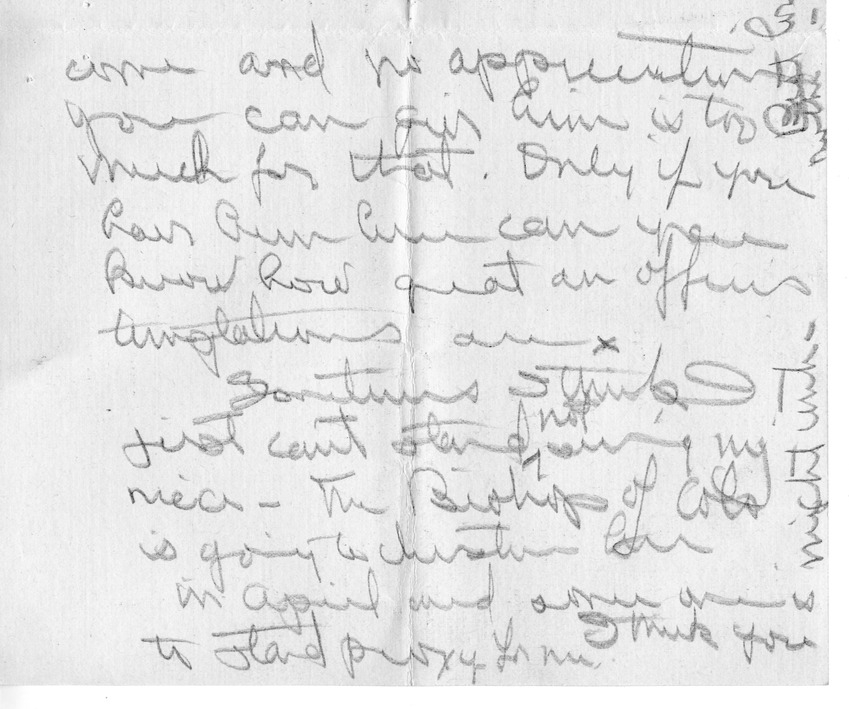 come and no appreciation
you can give him is too
much for that. Only if you
have him here can you
know how great an
are x
Sometimes I think I
just can't stand not seeing my
niece - The Bishop of Colo
is going to christen her
in April and some one is
to stand proxy for me. I think you
might